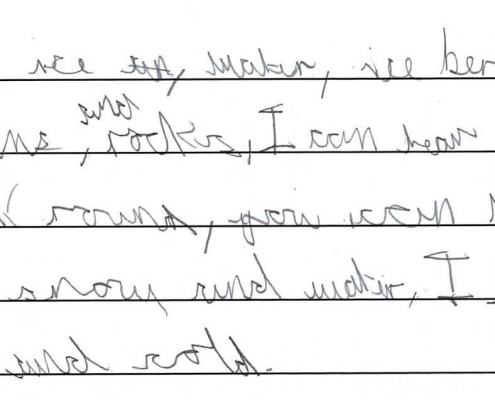 ice water, ice ber
and
ns, rocks, I can hear
you can
snow and water, I
and cold.